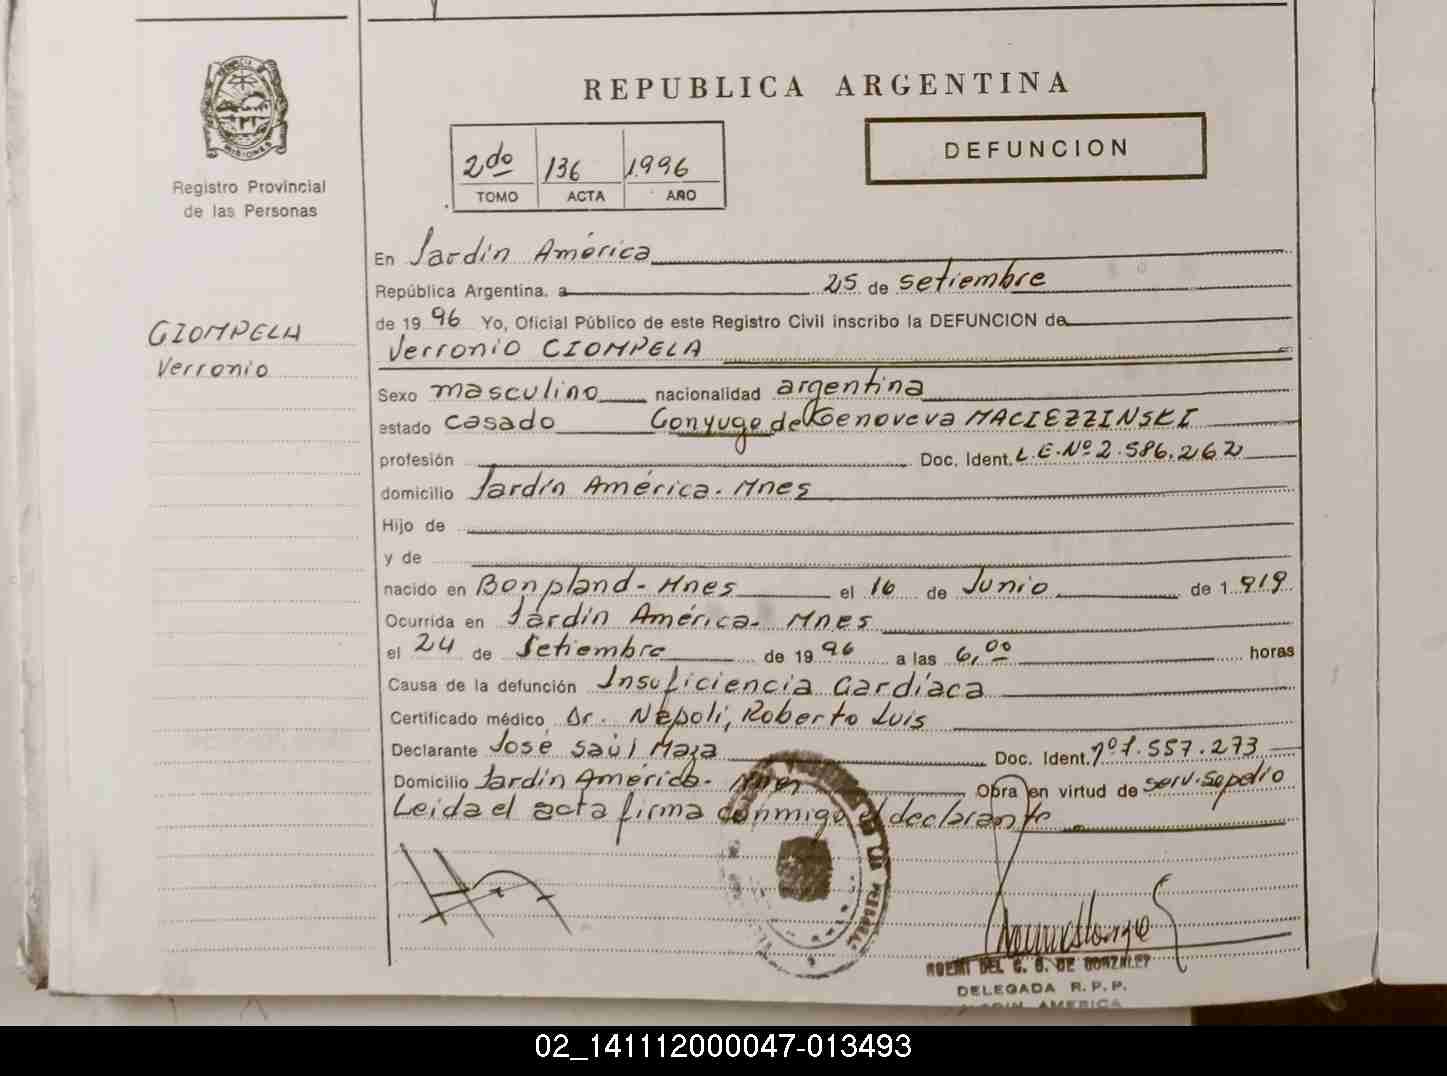 REPUBLICA ARGENTINA
MISIONES
Registro Provincial
de las Personas
2do 136 1996
TOMO ACTA AÑO
DEFUNCION
CIOMPELA
Verronio
En Jardín América
República Argentina, a 25 de setiembre
de 1996 Yo, Oficial Público de este Registro Civil inscribo la DEFUNCION de
Verronio CIOMPELA
Sexo masculino nacionalidad argentina
estado casado Conyuge de Genoveva MACIEZZINSKI
profesión Doc. Ident. L.E.Nº2.586.262
domicilio Jardín América. Mnes
Hijo de
y de
nacido en Bonpland-Mnes el 16 de Junio de 1.919
Ocurrida en Jardín América. Mnes
el 24 de Setiembre de 1996 a las 6,00 horas
Causa de la defunción Insuficiencia Cardíaca
Certificado médico Dr. Nepoli, Roberto Luis
Declarante José Saúl Maza Doc. Ident. nº7.557.273
Domicilio Jardín América. Mnes Obra en virtud de serv.sepelio
Leida el acta firma conmigo el declarante
NOEMI DEL C. G. DE GONZALEZ
DELEGADA R.P.P.
JARDIN AMERICA
02_141112000047-013493